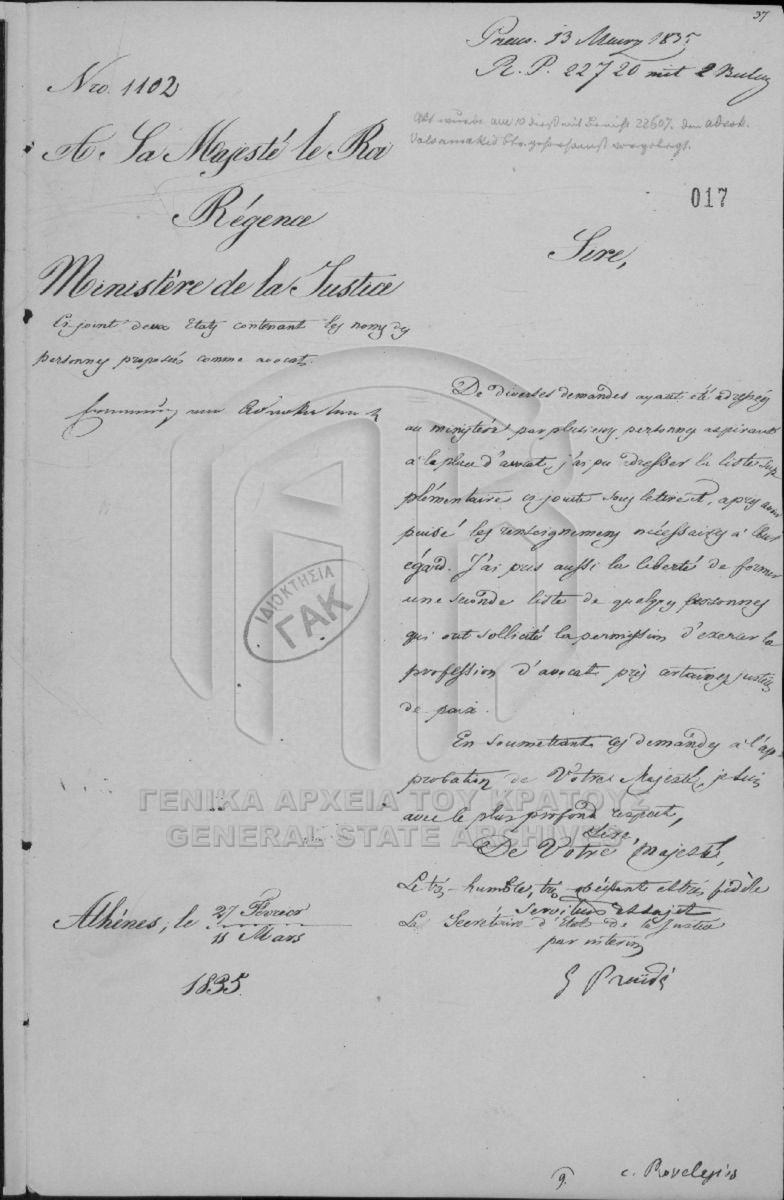 37
Praes. 13 Maerz 1835
R. P. 22720 mit 2 Beilag
Nro. 1102
A Sa Majesté le Roi
Régence
017
Sire,
Ministère de la Justice
Ci joint deux Etats contenant les noms des
personnes proposées comme avocats.
De diverses demandes ayant été adressées
au ministère par plusieurs personnes aspirant
à la place d'avocat, j'ai pu dresser la liste sup
plémentaire ci jointe sous lettre A, après avoir
puisé les renseignemens nécessaires à leur
égard. J'ai pris aussi la liberté de former
une seconde liste de quelques personnes
qui ont sollicité la permission d'exercer la
profession d'avocat près certaines justices
de paix.
En soumettant ces demandes à l'ap
probation de Votre Majesté, je suis
avec le plus profond respect,
Sire,
De Votre Majesté,
Le très-humble, très obéissant et très fidèle
serviteur et sujet
Le Secrétaire d'Etat de la Justice
par interim
Athènes, le 27 Février
11 Mars
1835.
ΙΔΙΟΚΤΗΣΙΑ
ΓΑΚ
ΓΕΝΙΚΑ ΑΡΧΕΙΑ ΤΟΥ ΚΡΑΤΟΥΣ
GENERAL STATE ARCHIVES